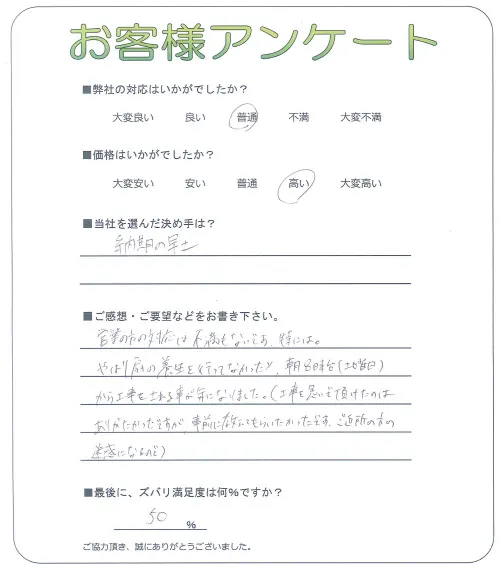 お客様アンケート
■弊社の対応はいかがでしたか？
大変良い 良い 普通 不満 大変不満
■価格はいかがでしたか？
大変安い 安い 普通 高い 大変高い
■当社を選んだ決め手は？
納期の早さ
■ご感想・ご要望などをお書き下さい。
営業の方の対応は不満もないです、特には。
やはり床の養生を行ってなかったと、朝8時台(土曜日)
から工事をされる事が気になりました。(工事を急いで頂けたのは
ありがたかったですが、事前に教えてもらいたかったです、ご近所の方の
迷惑になるので)
■最後に、ズバリ満足度は何%ですか？
50 %
ご協力頂き、誠にありがとうございました。